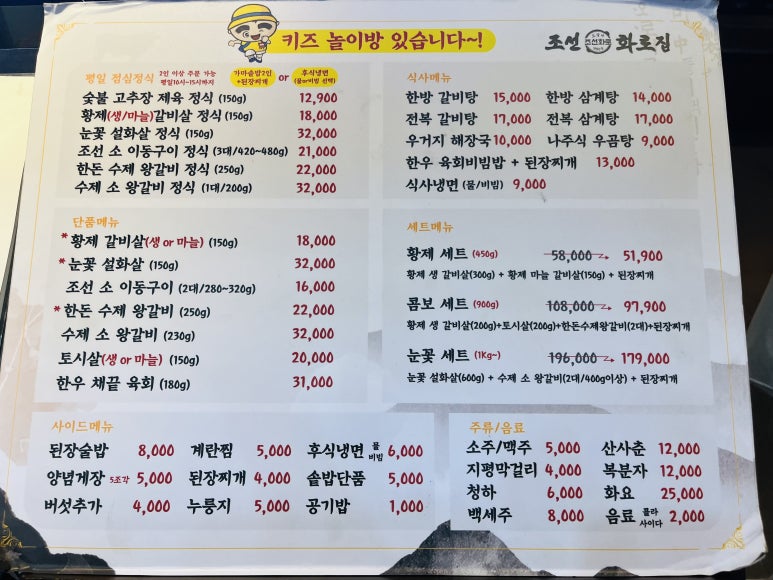 키즈 놀이방 있습니다~!
조선 조선화로 화로집
평일 점심정식 2인 이상 주문 가능 평일10시~15시까지 가마솥밥2인 +된장찌개 or 후식냉면 (물or비빔 선택)
숯불 고추장 제육 정식 (150g) 12,900
황제(생/마늘)갈비살 정식 (150g) 18,000
눈꽃 설화살 정식 (150g) 32,000
조선 소 이동구이 정식 (3대/420~480g) 21,000
한돈 수제 왕갈비 정식 (250g) 22,000
수제 소 왕갈비 정식 (1대/200g) 32,000
식사메뉴
한방 갈비탕 15,000 한방 삼계탕 14,000
전복 갈비탕 17,000 전복 삼계탕 17,000
우거지 해장국 10,000 나주식 우곰탕 9,000
한우 육회비빔밥 + 된장찌개 13,000
식사냉면 (물/비빔) 9,000
단품메뉴
*황제 갈비살(생 or 마늘) (150g) 18,000
*눈꽃 설화살 (150g) 32,000
조선 소 이동구이 (2대/280~320g) 16,000
*한돈 수제 왕갈비 (250g) 22,000
수제 소 왕갈비 (230g) 32,000
토시살(생 or 마늘) (150g) 20,000
한우 채끝 육회 (180g) 31,000
세트메뉴
황제 세트 (450g) 58,000 → 51,900
황제 생 갈비살(300g) + 황제 마늘 갈비살(150g) + 된장찌개
콤보 세트 (900g) 108,000 → 97,900
황제 생 갈비살(200g)+토시살(200g)+한돈수제왕갈비(2대)+된장찌개
눈꽃 세트 (1Kg~) 196,000 → 179,000
눈꽃 설화살(600g) + 수제 소 왕갈비(2대/400g이상) + 된장찌개
사이드메뉴
된장술밥 8,000 계란찜 5,000 후식냉면 물 비빔 6,000
양념게장 5조각 5,000 된장찌개 4,000 솥밥단품 5,000
버섯추가 4,000 누룽지 5,000 공기밥 1,000
주류/음료
소주/맥주 5,000 산사춘 12,000
지평막걸리 4,000 복분자 12,000
청하 6,000 화요 25,000
백세주 8,000 음료 콜라 사이다 2,000